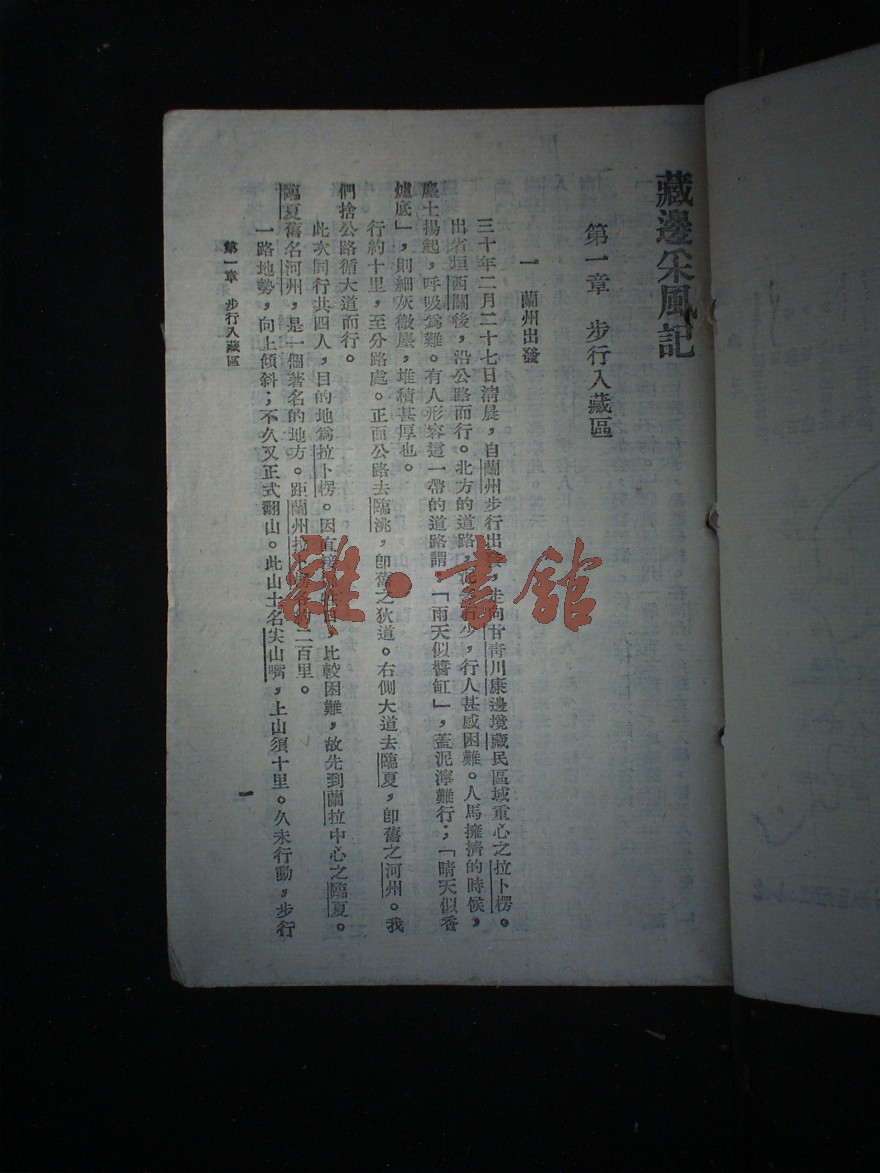 藏邊采風記
第一章　步行入藏區
一　蘭州出發
三十年二月二十七日清晨，自蘭州步行出，走向甘靑川康邊境藏民區域重心之拉卜楞。
出省垣西關後，沿公路而行。北方的道路，少，行人甚感困難。人馬擁擠的時候，
塵土揚起，呼吸爲難。有人形容這一帶的道路謂，「雨天似醬缸」，蓋泥濘難行；「晴天似香
爐底」，則細灰微塵，堆積甚厚也。
行約十里，至分路處。正面公路去臨洮，卽舊之狄道。右側大道去臨夏，卽舊之河州。我
們捨公路循大道而行。
此次同行共四人，目的地爲拉卜楞。因直接，比較困難，故先到蘭拉中心之臨夏。
臨夏舊名河州，是一個著名的地方。距蘭州拉二百里。
一路地勢，向上傾斜；不久又正式翻山。此山土名尖山嘴，上山須十里。久未行動，步行
第一章　步行入藏區
一
雜·書館